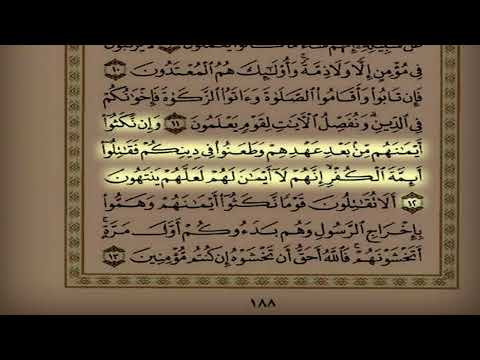 عَن سَبِيلِهِۦٓ إِنَّهُمْ سَآءَ مَا كَانُوا۟ يَعْمَلُونَ ٩ لَا يَرْقُبُونَ
فِى مُؤْمِنٍ إِلًّا وَلَا ذِمَّةً ۚ وَأُو۟لَٰٓئِكَ هُمُ ٱلْمُعْتَدُونَ ١٠
فَإِن تَابُوا۟ وَأَقَامُوا۟ ٱلصَّلَوٰةَ وَءَاتَوُا۟ ٱلزَّكَوٰةَ فَإِخْوَٰنُكُمْ
فِى ٱلدِّينِ ۗ وَنُفَصِّلُ ٱلْءَايَٰتِ لِقَوْمٍ يَعْلَمُونَ ١١ وَإِن نَّكَثُوٓا۟
أَيْمَٰنَهُم مِّنۢ بَعْدِ عَهْدِهِمْ وَطَعَنُوا۟ فِى دِينِكُمْ فَقَٰتِلُوٓا۟
أَئِمَّةَ ٱلْكُفْرِ ۙ إِنَّهُمْ لَآ أَيْمَٰنَ لَهُمْ لَعَلَّهُمْ يَنتَهُونَ
١٢ أَلَا تُقَٰتِلُونَ قَوْمًا نَّكَثُوٓا۟ أَيْمَٰنَهُمْ وَهَمُّوا۟
بِإِخْرَاجِ ٱلرَّسُولِ وَهُم بَدَءُوكُمْ أَوَّلَ مَرَّةٍ ۚ
أَتَخْشَوْنَهُمْ ۚ فَٱللَّهُ أَحَقُّ أَن تَخْشَوْهُ إِن كُنتُم مُّؤْمِنِينَ ١٣
١٨٨